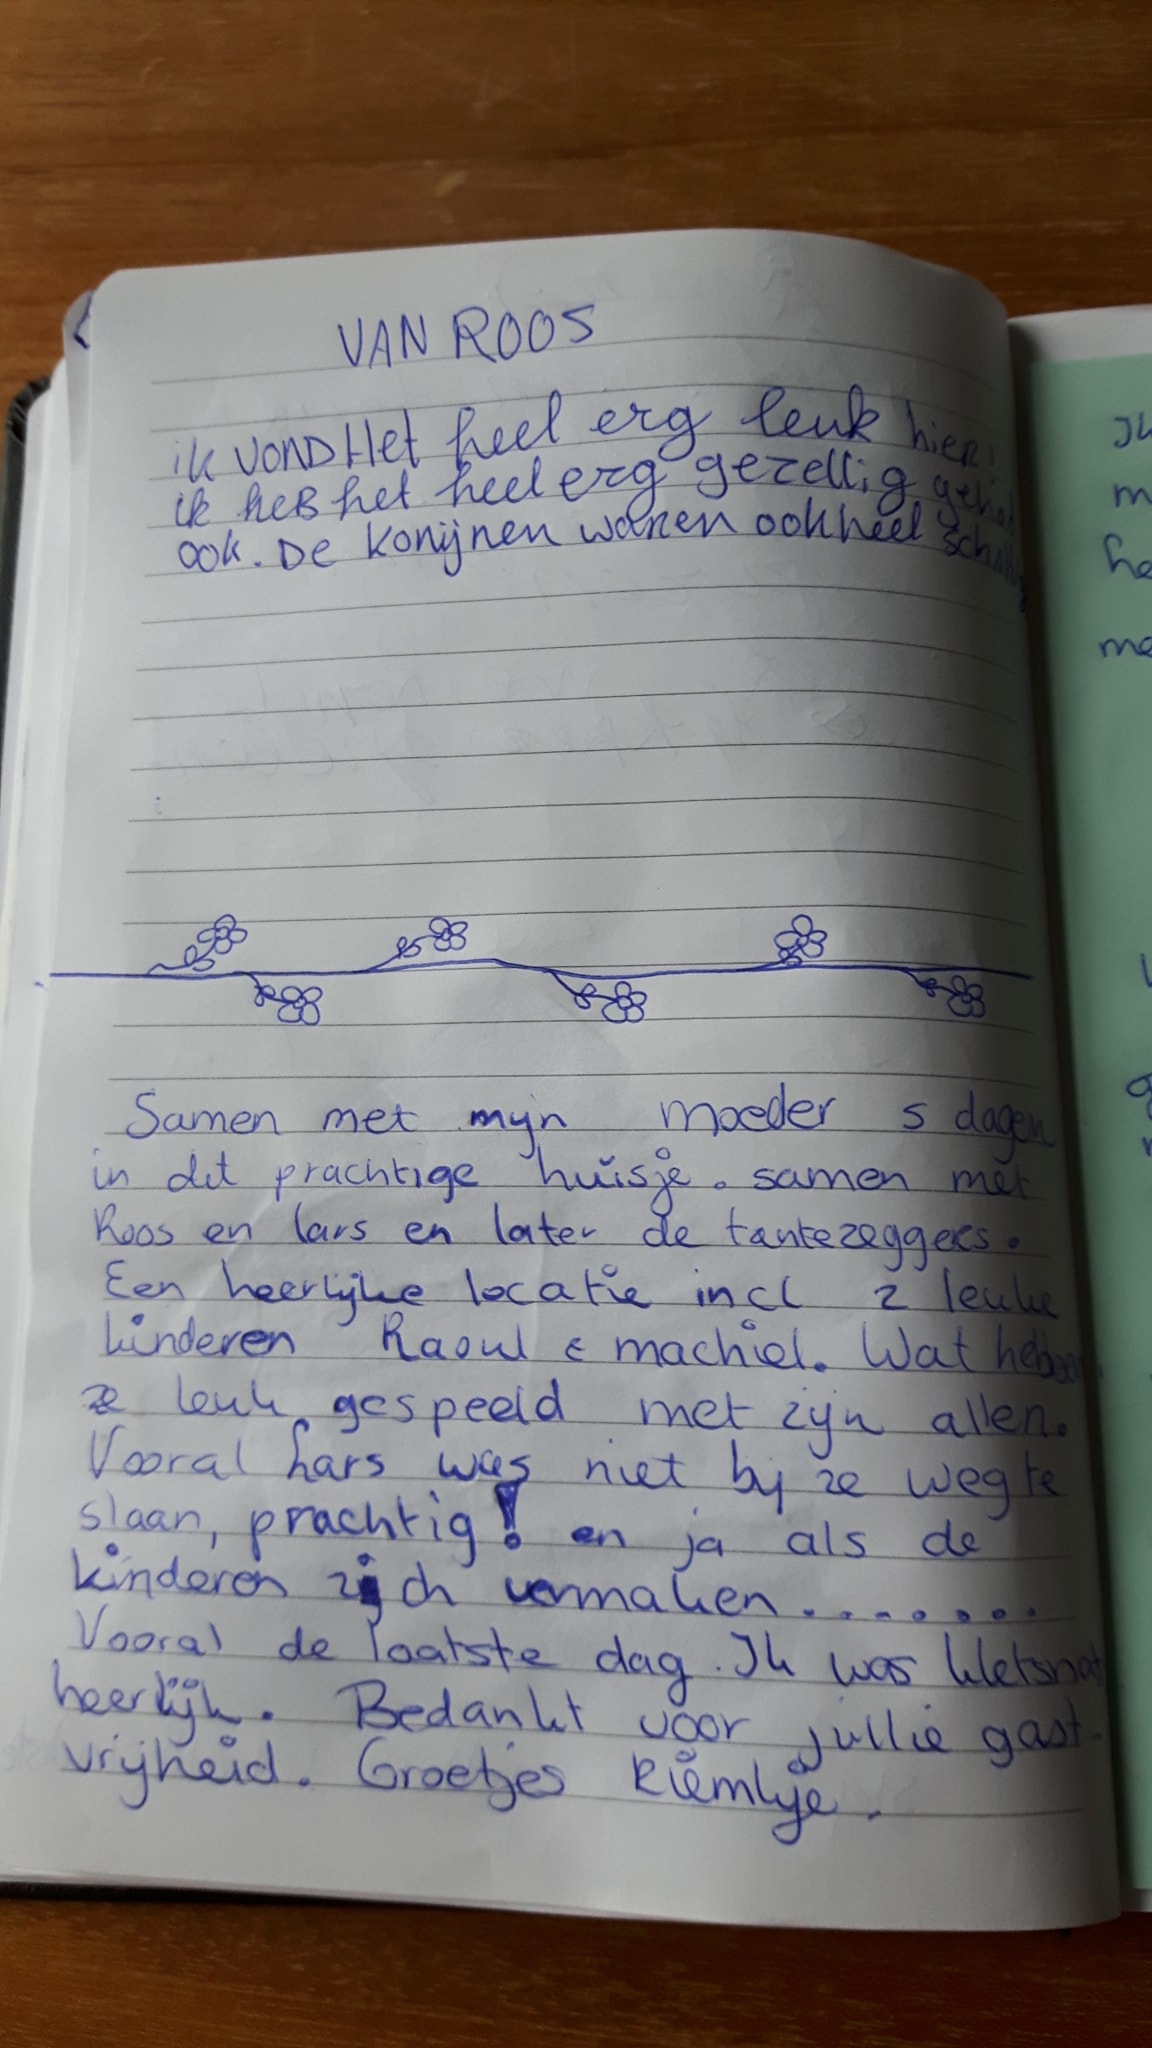 VAN ROOS
ik VOND Het heel erg leuk hier.
ik heb het heel erg gezellig
ook. De konijnen waren ook heel
Samen met mijn moeder 5 dagen
in dit prachtige huisje. samen met
Roos en Lars en later de tantezeggers.
Een heerlijke locatie incl 2 leuke
kinderen Raoul & machiel. Wat hebben
ze leuk gespeeld met zijn allen.
Vooral Lars was niet bij ze weg te
slaan, prachtig! en ja als de
kinderen zich vermaken........
Vooral de laatste dag. Ik was kletsnat
heerlijk. Bedankt voor jullie gast-
vrijheid. Groetjes Riemkje.
Ik
m
he
me